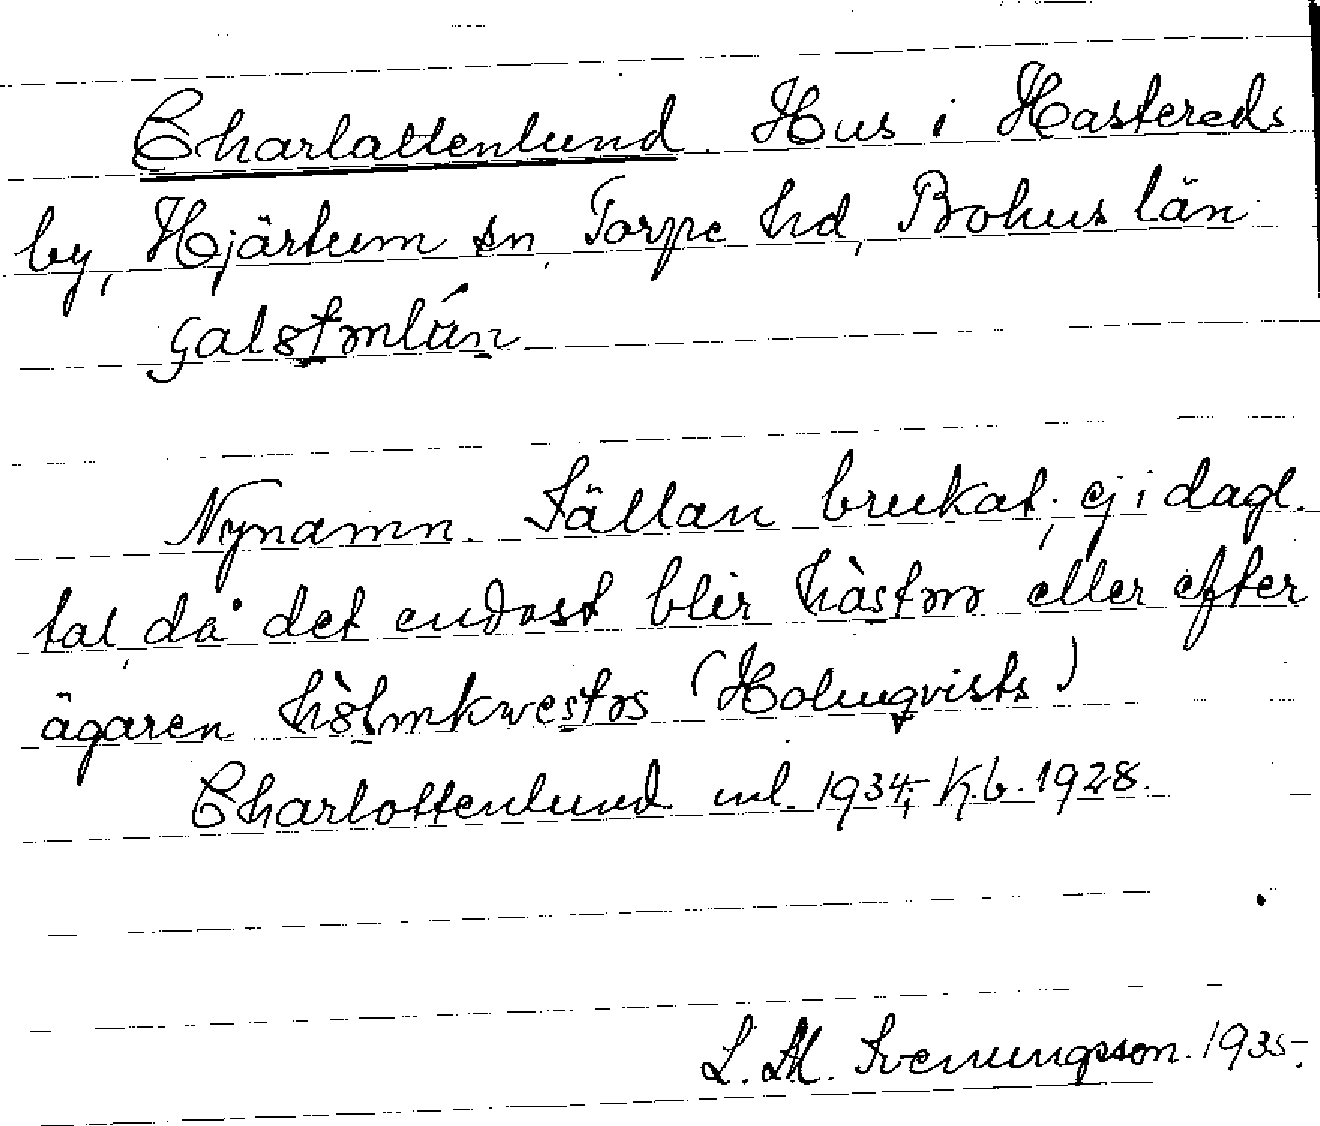 Charlattenlund. Hus i Hastereds
by, Hjärtum sn, Torpe hd, Bohus län.
Nynamn. Sällan brukat, ej i dagl.
tal, då det endast blir hàstəro eller efter
ägaren (Holmqvists)
Charlottenlund ml. 1934; Kb. 1928.
L. M. Svenungsson. 1935.